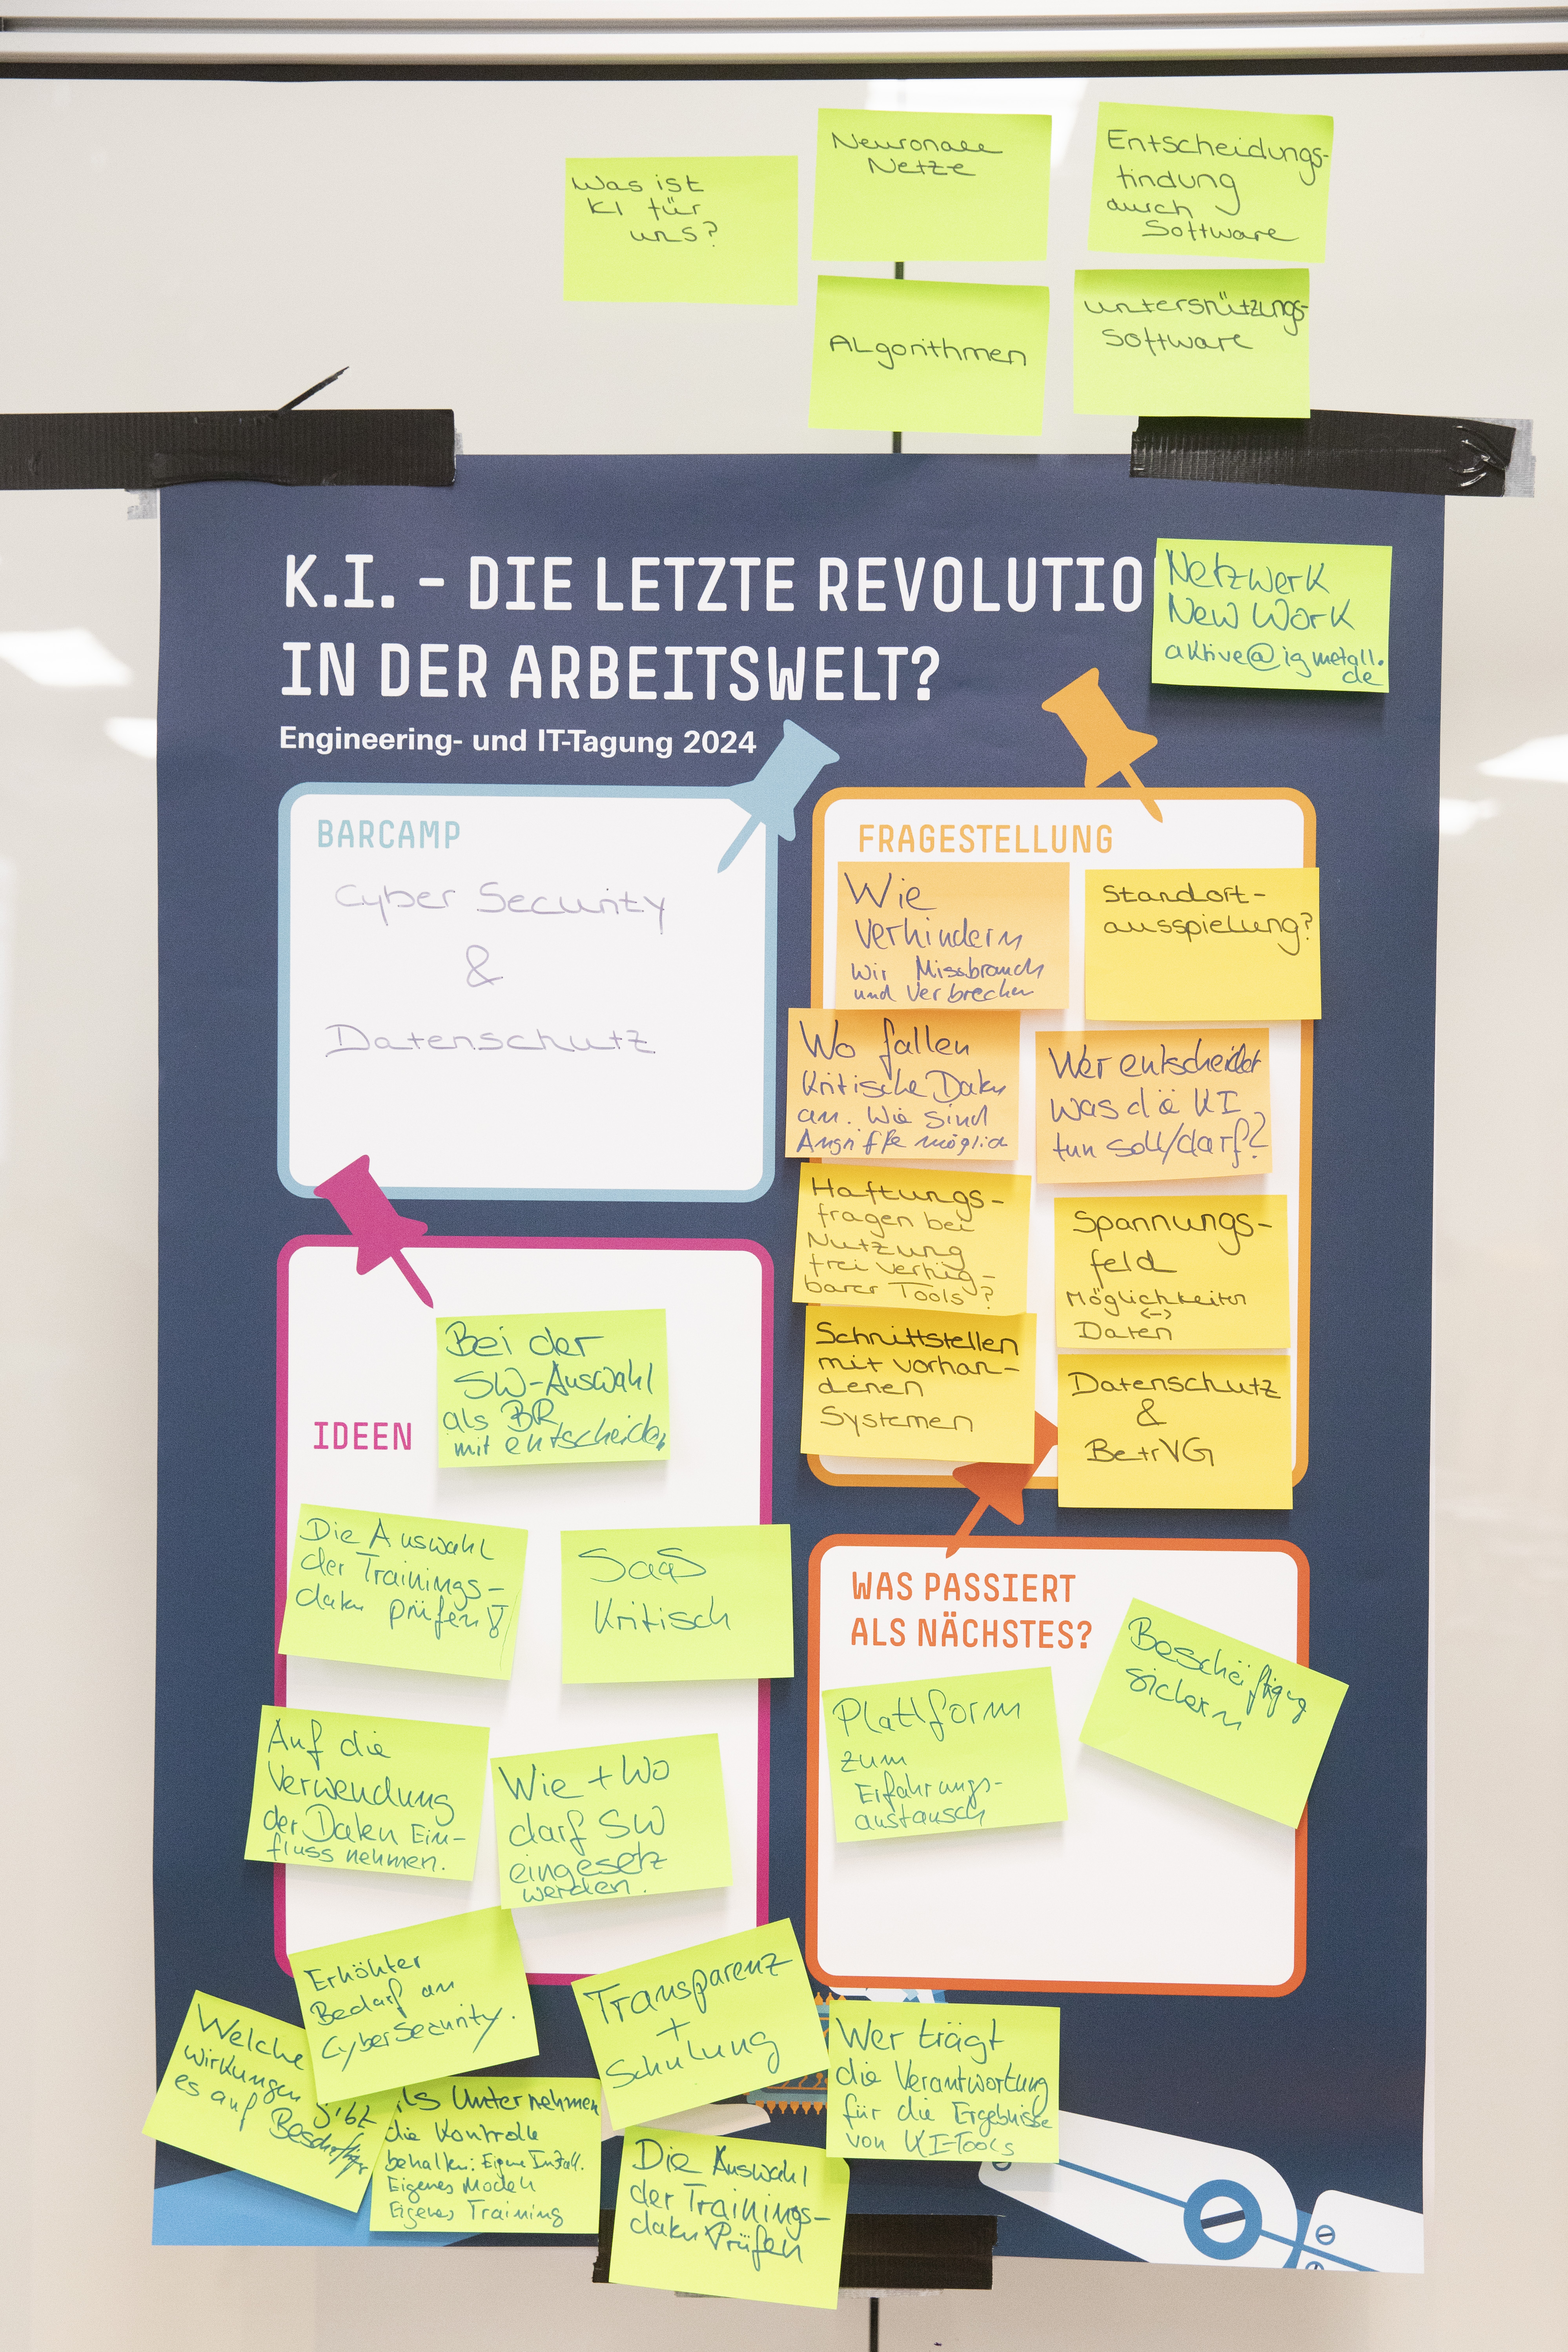 Was ist
KI für
uns?
Neuronale
Netze
Entscheidungs-
findung
durch
Software
Algorithmen
unterstützungs-
software
K.I. - DIE LETZTE REVOLUTIO
IN DER ARBEITSWELT?
Engineering- und IT-Tagung 2024
Netzwerk
New Work
aktive@igmetall.
de
BARCAMP
Cyber Security
&
Datenschutz
FRAGESTELLUNG
Wie
verhindern
wir Missbrauch
und Verbrechen
Standort-
ausspielung?
Wo fallen
kritische Daten
an. Wie sind
Angriffe möglich
Wer entscheidet
was die KI
tun soll/darf?
Haftungs-
fragen bei
Nutzung
frei verfüg-
barer Tools?
Spannungs-
feld
Möglichkeiten
<->
Daten
Schnittstellen
mit vorhan-
denen
Systemen
Datenschutz
&
BetrVG
IDEEN
Bei der
SW-Auswahl
als BR
mit entscheiden
Die Auswahl
der Trainings-
daten prüfen!
SaaS
Kritisch
Auf die
Verwendung
der Daten Ein-
fluss nehmen.
Wie + Wo
darf SW
eingesetz
werden.
Erhöhter
Bedarf an
CyberSecurity.
Welche
Wirkungen
gibt
es auf Beschäftigte
als Unternehmen
die Kontrolle
behalten: Eigene Install.
Eigenes Modell
Eigenes Training
Transparenz
+
Schulung
Die Auswahl
der Trainings-
daten Prüfen
Wer trägt
die Verantwortung
für die Ergebnisse
von KI-Tools
WAS PASSIERT
ALS NÄCHSTES?
Plattform
zum
Erfahrungs-
austausch
Beschäftigung
sichern